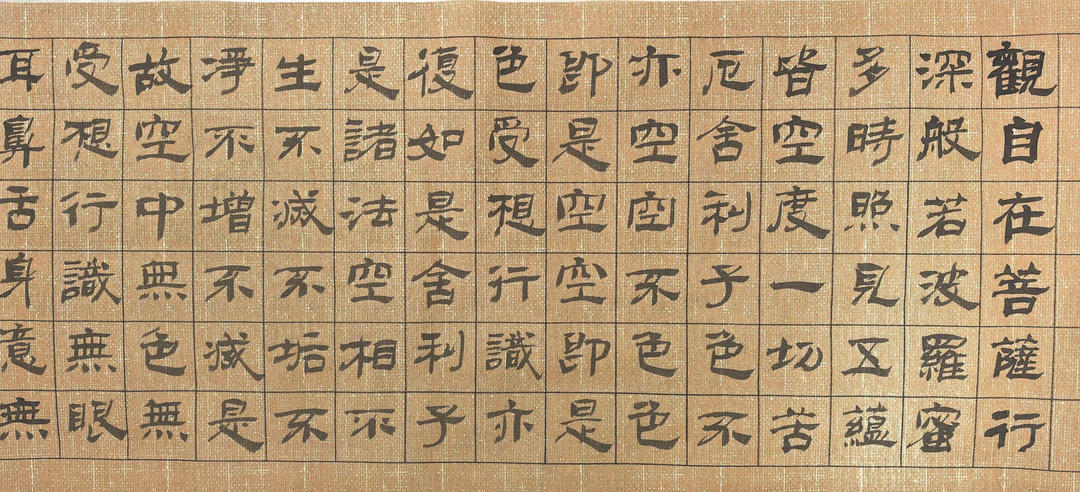 觀自在菩薩行
深般若波羅蜜
多時照見五蘊
皆空度一切苦
厄舍利子色不
亦空空不色色
即是空空即是
色受想行識亦
復如是舍利子
是諸法空相不
生不滅不垢不
淨不增不減是
故空中無色無
受想行識無眼
耳鼻舌身意無